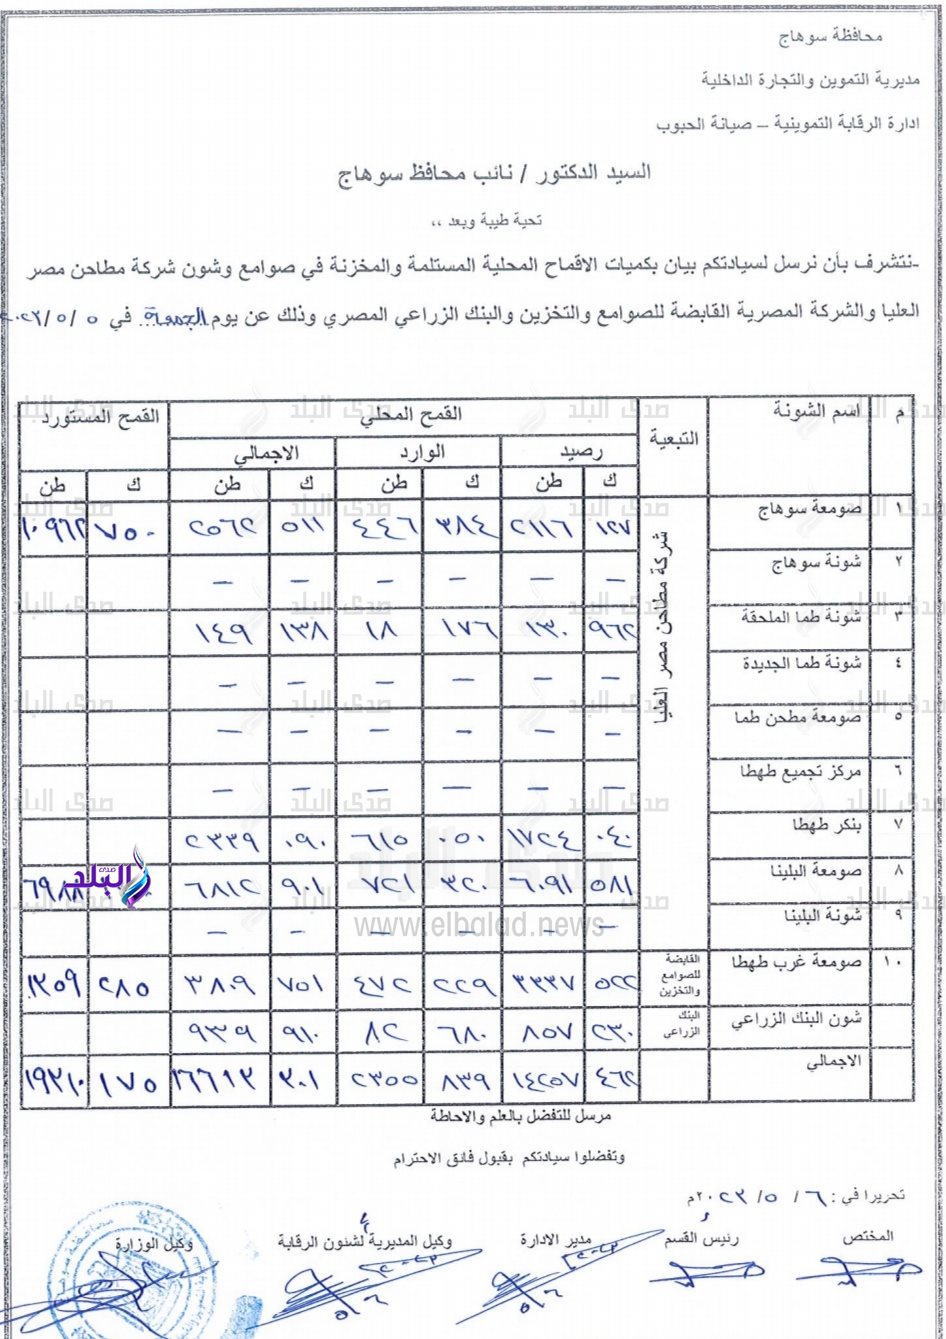 محافظة سوهاج
مديرية التموين والتجارة الداخلية
ادارة الرقابة التموينية – صيانة الحبوب
السيد الدكتور / نائب محافظ سوهاج
تحية طيبة وبعد ،،
-نتشرف بأن نرسل لسيادتكم بيان بكميات الاقماح المحلية المستلمة والمخزنة في صوامع وشون شركة مطاحن مصر
العليا والشركة المصرية القابضة للصوامع والتخزين والبنك الزراعي المصري وذلك عن يوم الجمعة في ٥ /٥ /٢٠٢٣
م اسم الشونة التبعية القمح المحلي القمح المستورد
رصيد الوارد الاجمالي
ك طن ك طن ك طن ك طن
شركة مطاحن مصر العليا
١ صومعة سوهاج ١٢٧ ٢١١٦ ٣٨٤ ٤٤٦ ٥١١ ٢٥٦٢ ٧٥٠ ١٠٩٦٢
٢ شونة سوهاج – – – – – –
٣ شونة طما الملحقة ٩٦٢ ١٣٠ ١٧٦ ١٨ ١٣٨ ١٤٩
٤ شونة طما الجديدة – – – – – –
٥ صومعة مطحن طما – – – – – –
٦ مركز تجميع طهطا – – – – – –
٧ بنكر طهطا ٠٤٠ ١٧٢٤ ٠٥٠ ٦١٥ ٠٩٠ ٢٣٣٩
٨ صومعة البلينا ٥٨١ ٦٠٩١ ٣٢٠ ٧٢١ ٩٠١ ٦٨١٢
٩ شونة البلينا – – – – – –
١٠ صومعة غرب طهطا القابضة للصوامع والتخزين ٥٢٢ ٣٣٣٧ ٢٢٩ ٤٧٢ ٧٥١ ٣٨٠٩ ٢٨٥ ١٣٥٩
شون البنك الزراعي البنك الزراعى ٢٣٠ ٨٥٧ ٦٨٠ ٨٢ ٩١٠ ٩٣٩
الاجمالي ٤٦٢ ١٤٢٥٧ ٨٣٩ ٢٣٥٥ ٣٠١ ١٦٦١٣ ١٧٥ ١٩٣١٠
صدى البلد
www.elbalad.news
مرسل للتفضل بالعلم والاحاطة
وتفضلوا سيادتكم بقبول فائق الاحترام
تحريرا في : ٦ / ٥ /٢٠٢٣م
المختص رئيس القسم مدير الادارة وكيل المديرية لشئون الرقابة وكيل الوزارة